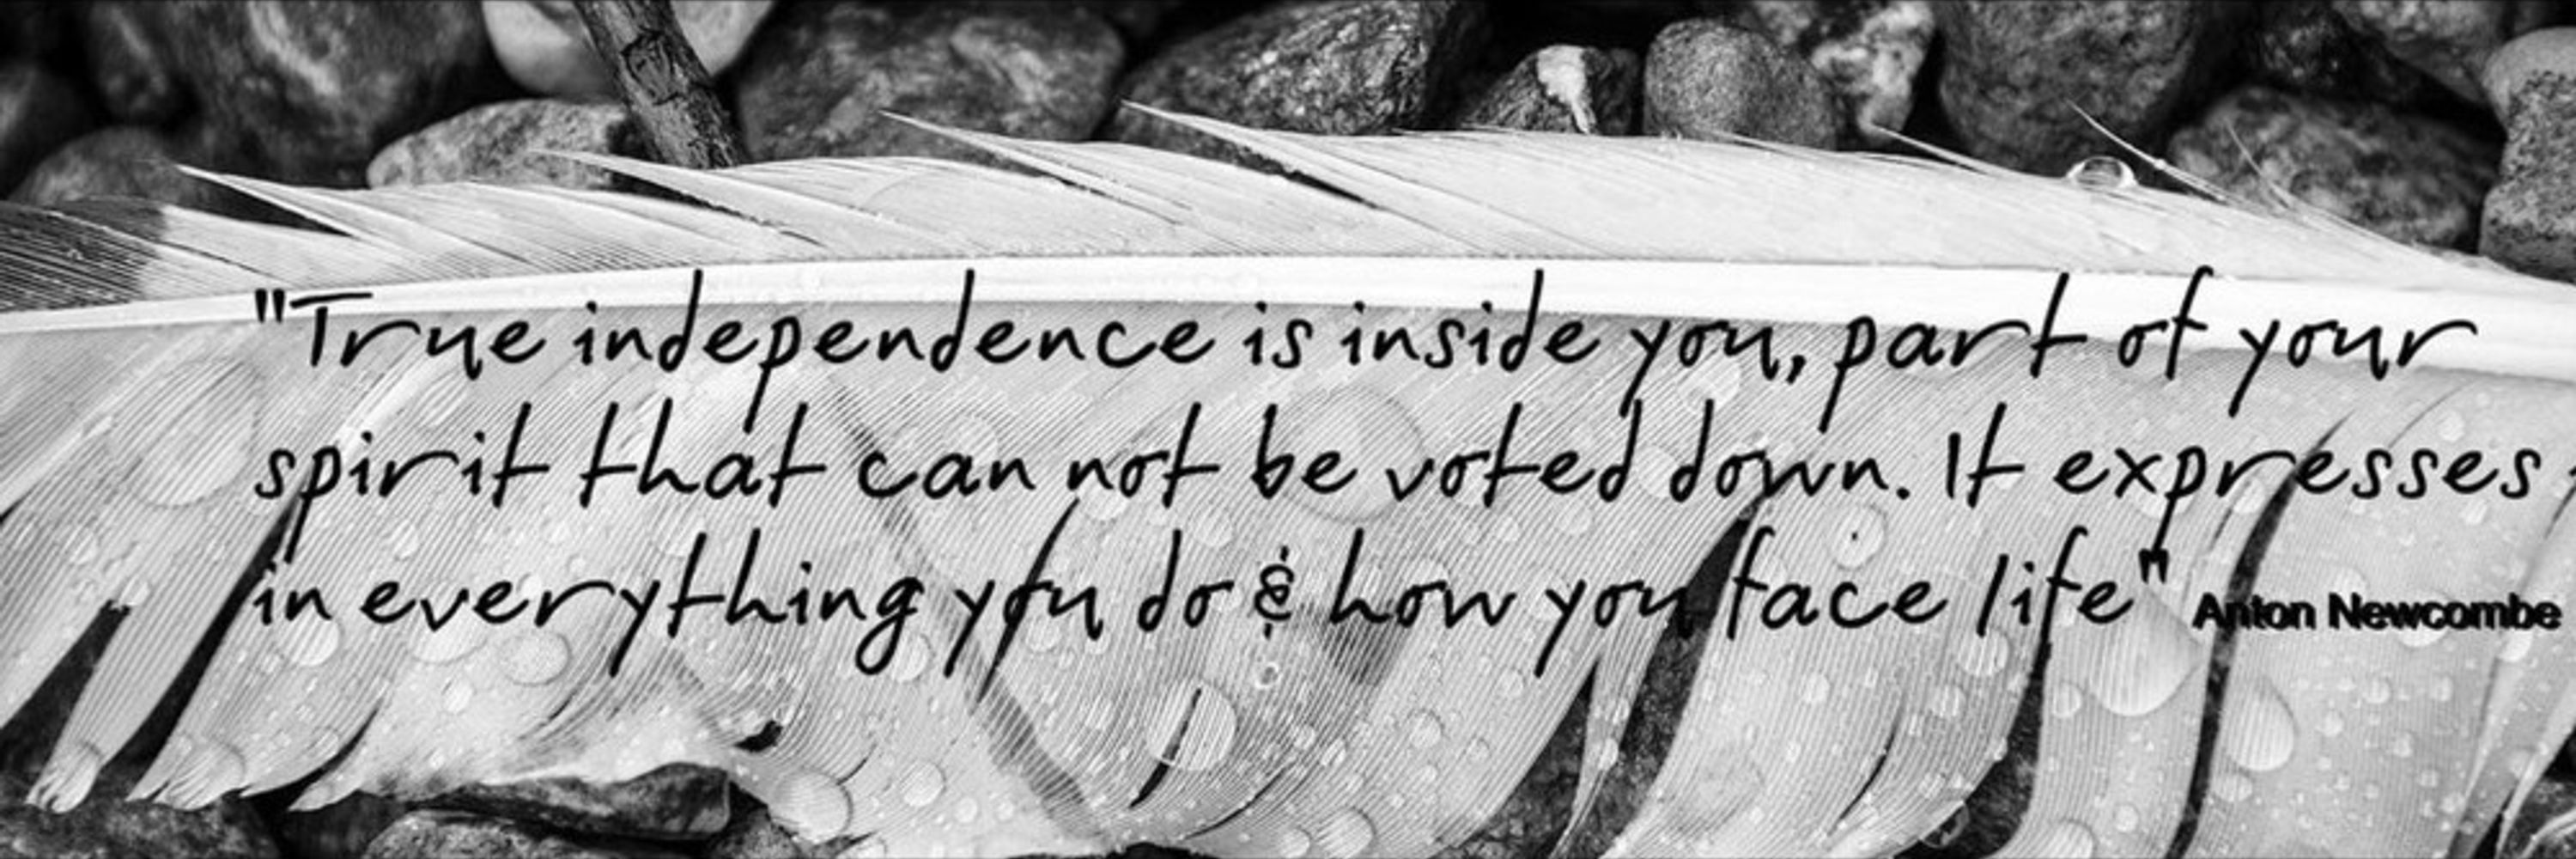 "True independence is inside you, part of your
spirit that can not be voted down. It expresses
in everything you do & how you face life" Anton Newcombe